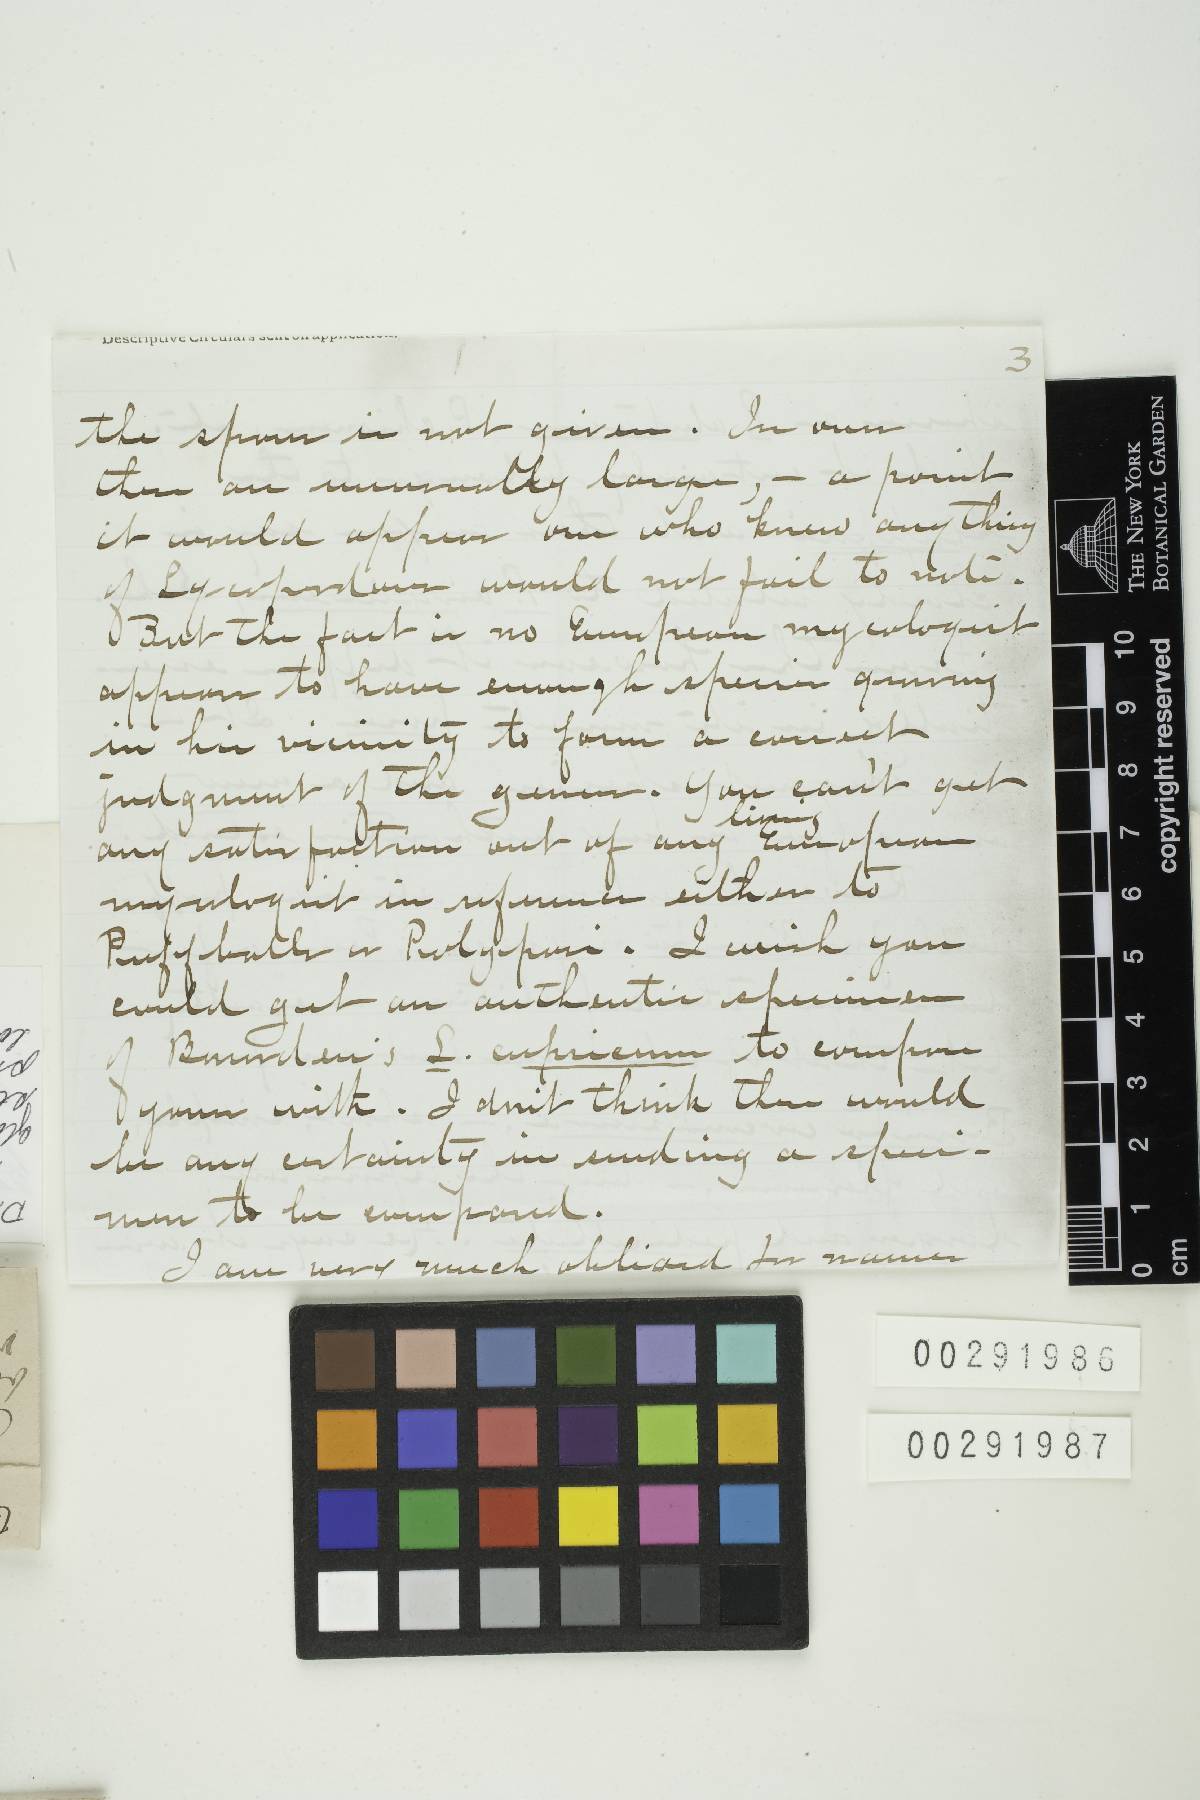 Descriptive Circulars sent on application.
3
the spores is not given. In ours
they are unusually large, – a point
it would appear one who knew anything
of Lycoperdons would not fail to note.
But the fact is no European mycologist
appears to have enough species growing
in his vicinity to form a correct
judgment of the genus. You can't get
any satisfaction out of any living European
mycologist in reference either to
Puffballs or Polypori. I wish you
could get an authentic specimen
of Bourdon's L. cupricum to compare
yours with. I don't think there would
be any certainty in sending a speci-
men to be compared.
I am very much obliged for names
THE NEW YORK
BOTANICAL GARDEN
copyright reserved
cm
0 1 2 3 4 5 6 7 8 9 10
00291986
00291987